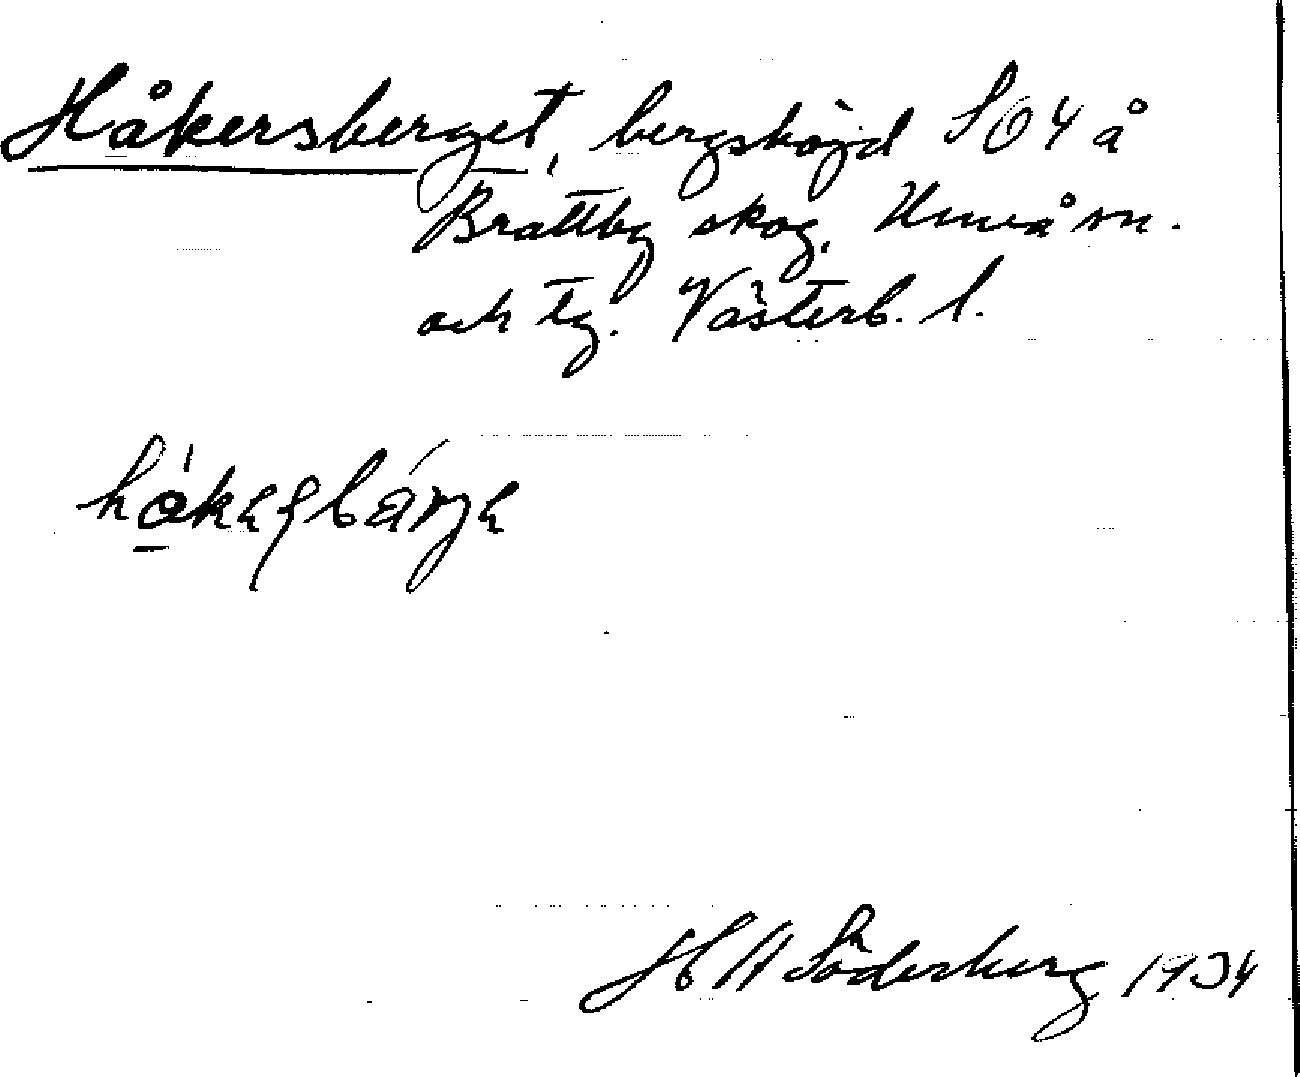 Håkersberget, bergshöjd SO4 å
Brattby skog, Umeå sn.
och tg. Västerb. l.
H A Söderberg 1934